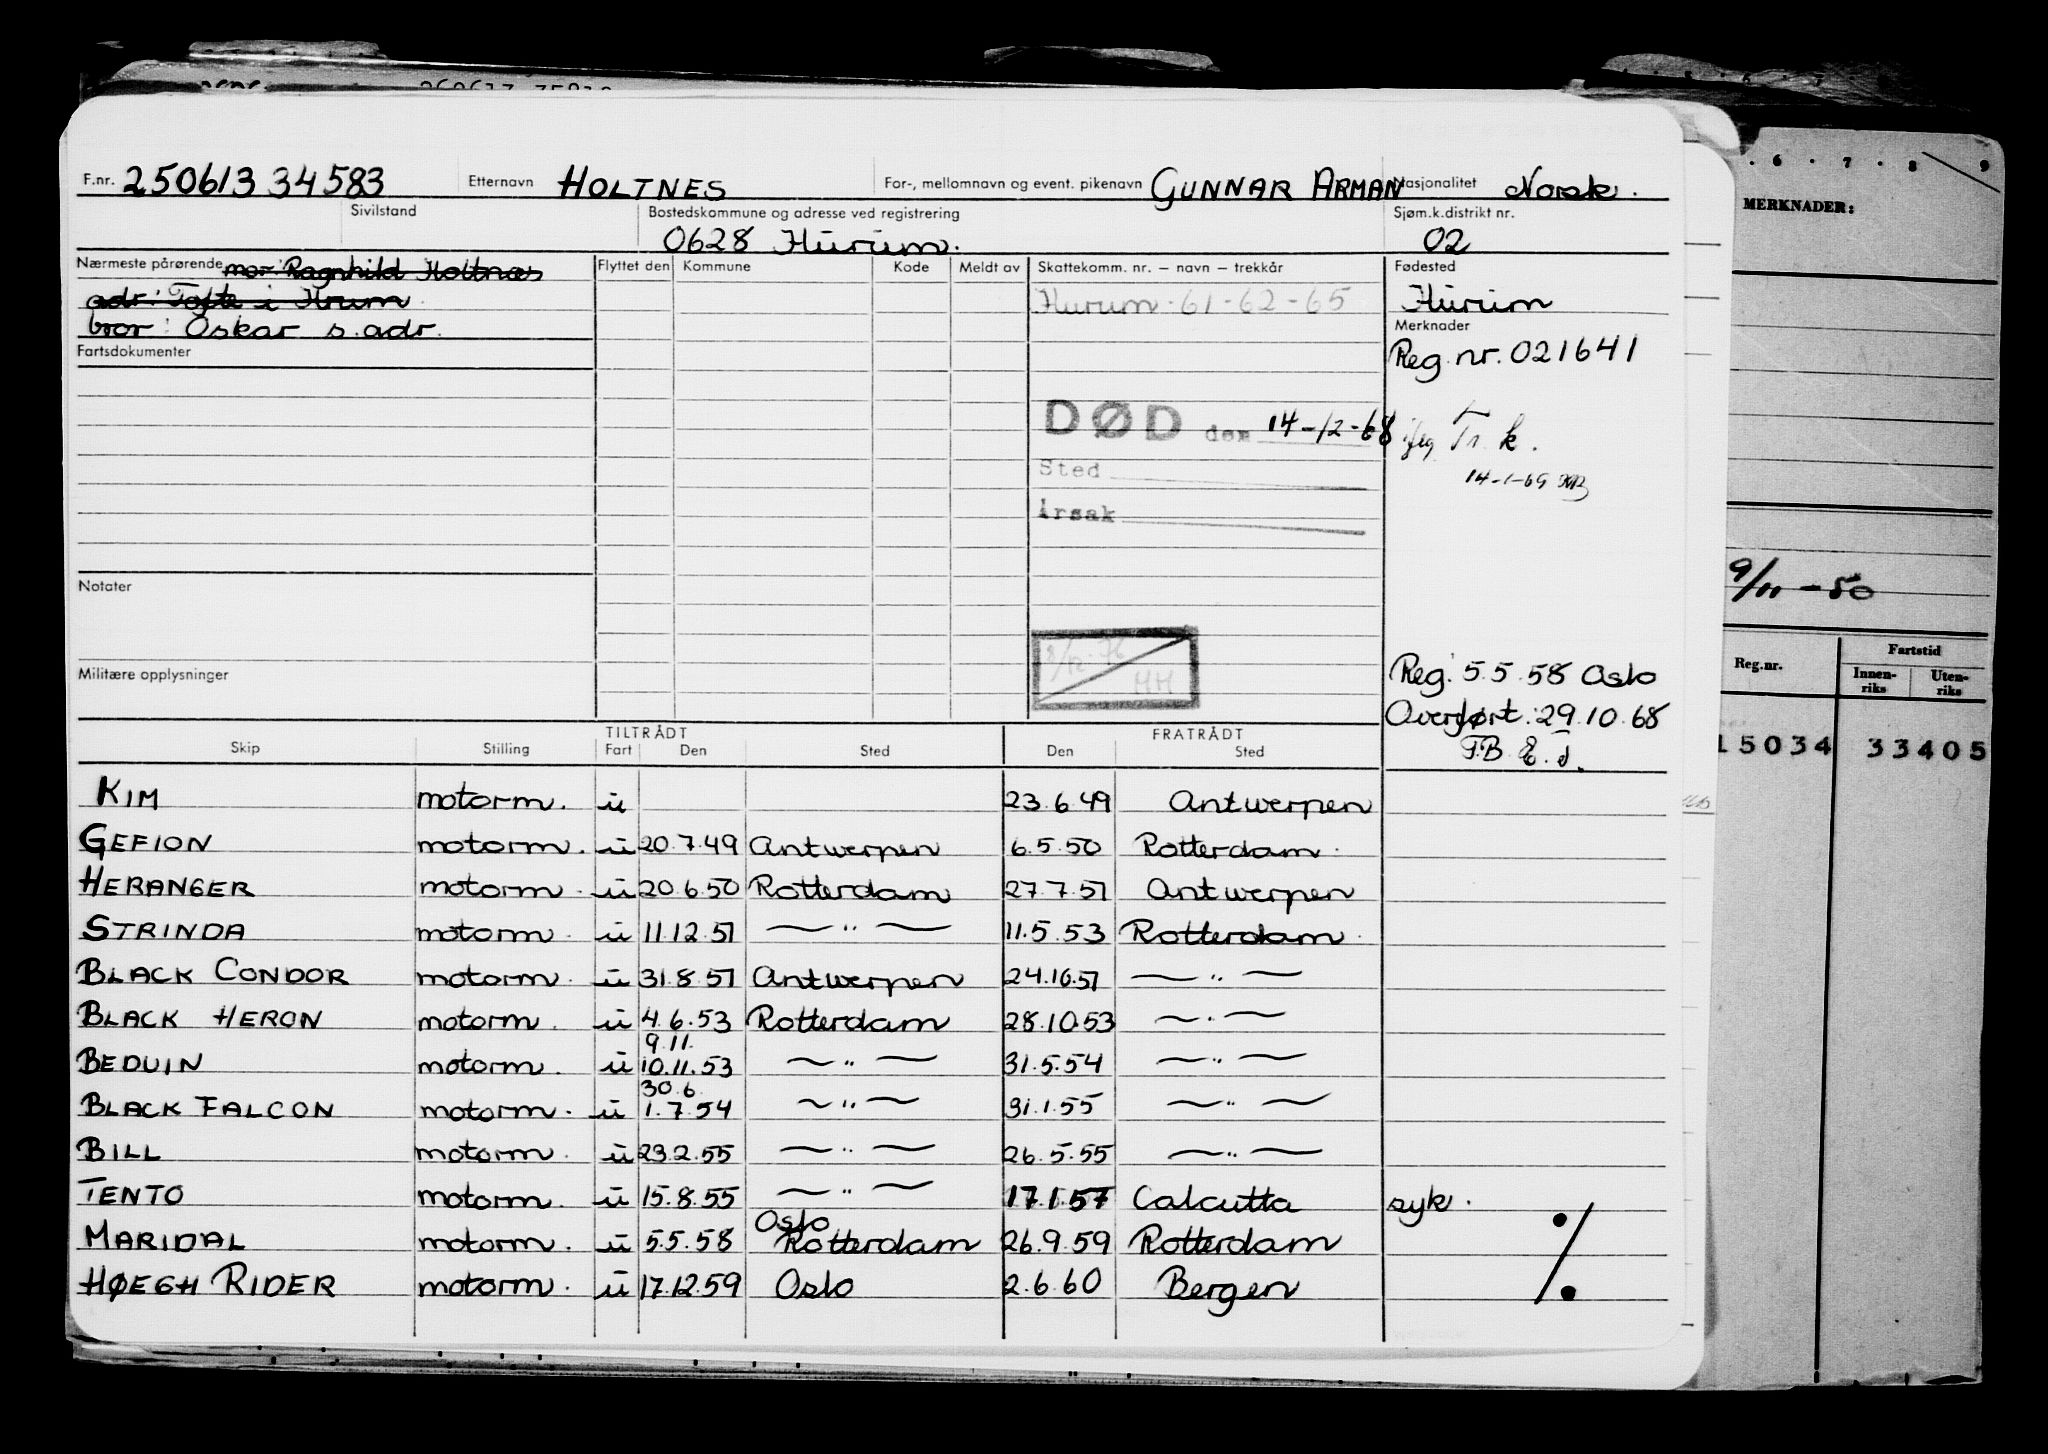 F.nr. 250613 34583 Etternavn HOLTNES For-, mellomnavn og event. pikenavn GUNNAR ARMAN Nasjonalitet Norsk.
Sivilstand Bostedskommune og adresse ved registrering Sjøm.k.distrikt nr.
0628 Hurum. 02
Nærmeste pårørende mor: Ragnhild Holtnæs Flyttet den Kommune Kode Meldt av Skattekomm. nr. – navn – trekkår Fødested
adr: Tofte i Hrum Hurum 61-62-65 Hurum
bror: Oskar s. adr. Merknader
Fartsdokumenter Reg. nr. 021641
DØD den 14-12-68 Tr. k.
Sted 14-1-69
Årsak
Notater
Militære opplysninger HM Reg. 5.5.58 Oslo
Overført: 29.10.68
TILTRÅDT FRATRÅDT
Skip Stilling Fart Den Sted Den Sted
KIM motorm. u 23.6.49 Antwerpen
GEFION motorm. u 20.7.49 Antwerpen 6.5.50 Rotterdam.
HERANGER motorm. u 20.6.50 Rotterdam 27.7.51 Antwerpen
STRINDA motorm. u 11.12.51 — " — 11.5.53 Rotterdam.
BLACK CONDOR motorm. u 31.8.51 Antwerpen 24.10.51 — " —
BLACK HERON motorm. u 4.6.53 Rotterdam 28.10.53 — " —
9.11.
BEDUIN motorm. u 10.11.53 — " — 31.5.54 — " —
30.6.
BLACK FALCON motorm. u 1.7.54 — " — 31.1.55 — " —
BILL motorm. u 23.2.55 — " — 26.5.55 — " —
TENTO motorm. u 15.8.55 — " — 17.1.57 Calcutta syk.
Oslo
MARIDAL motorm. u 5.5.58 Rotterdam 26.9.59 Rotterdam
HØEGH RIDER motorm. u 17.12.59 Oslo 2.6.60 Bergen
./.
6 . 7 . 8 9
MERKNADER:
9/11-50
Reg.nr. Fartstid
Innen-riks Uten-riks
15034 33405